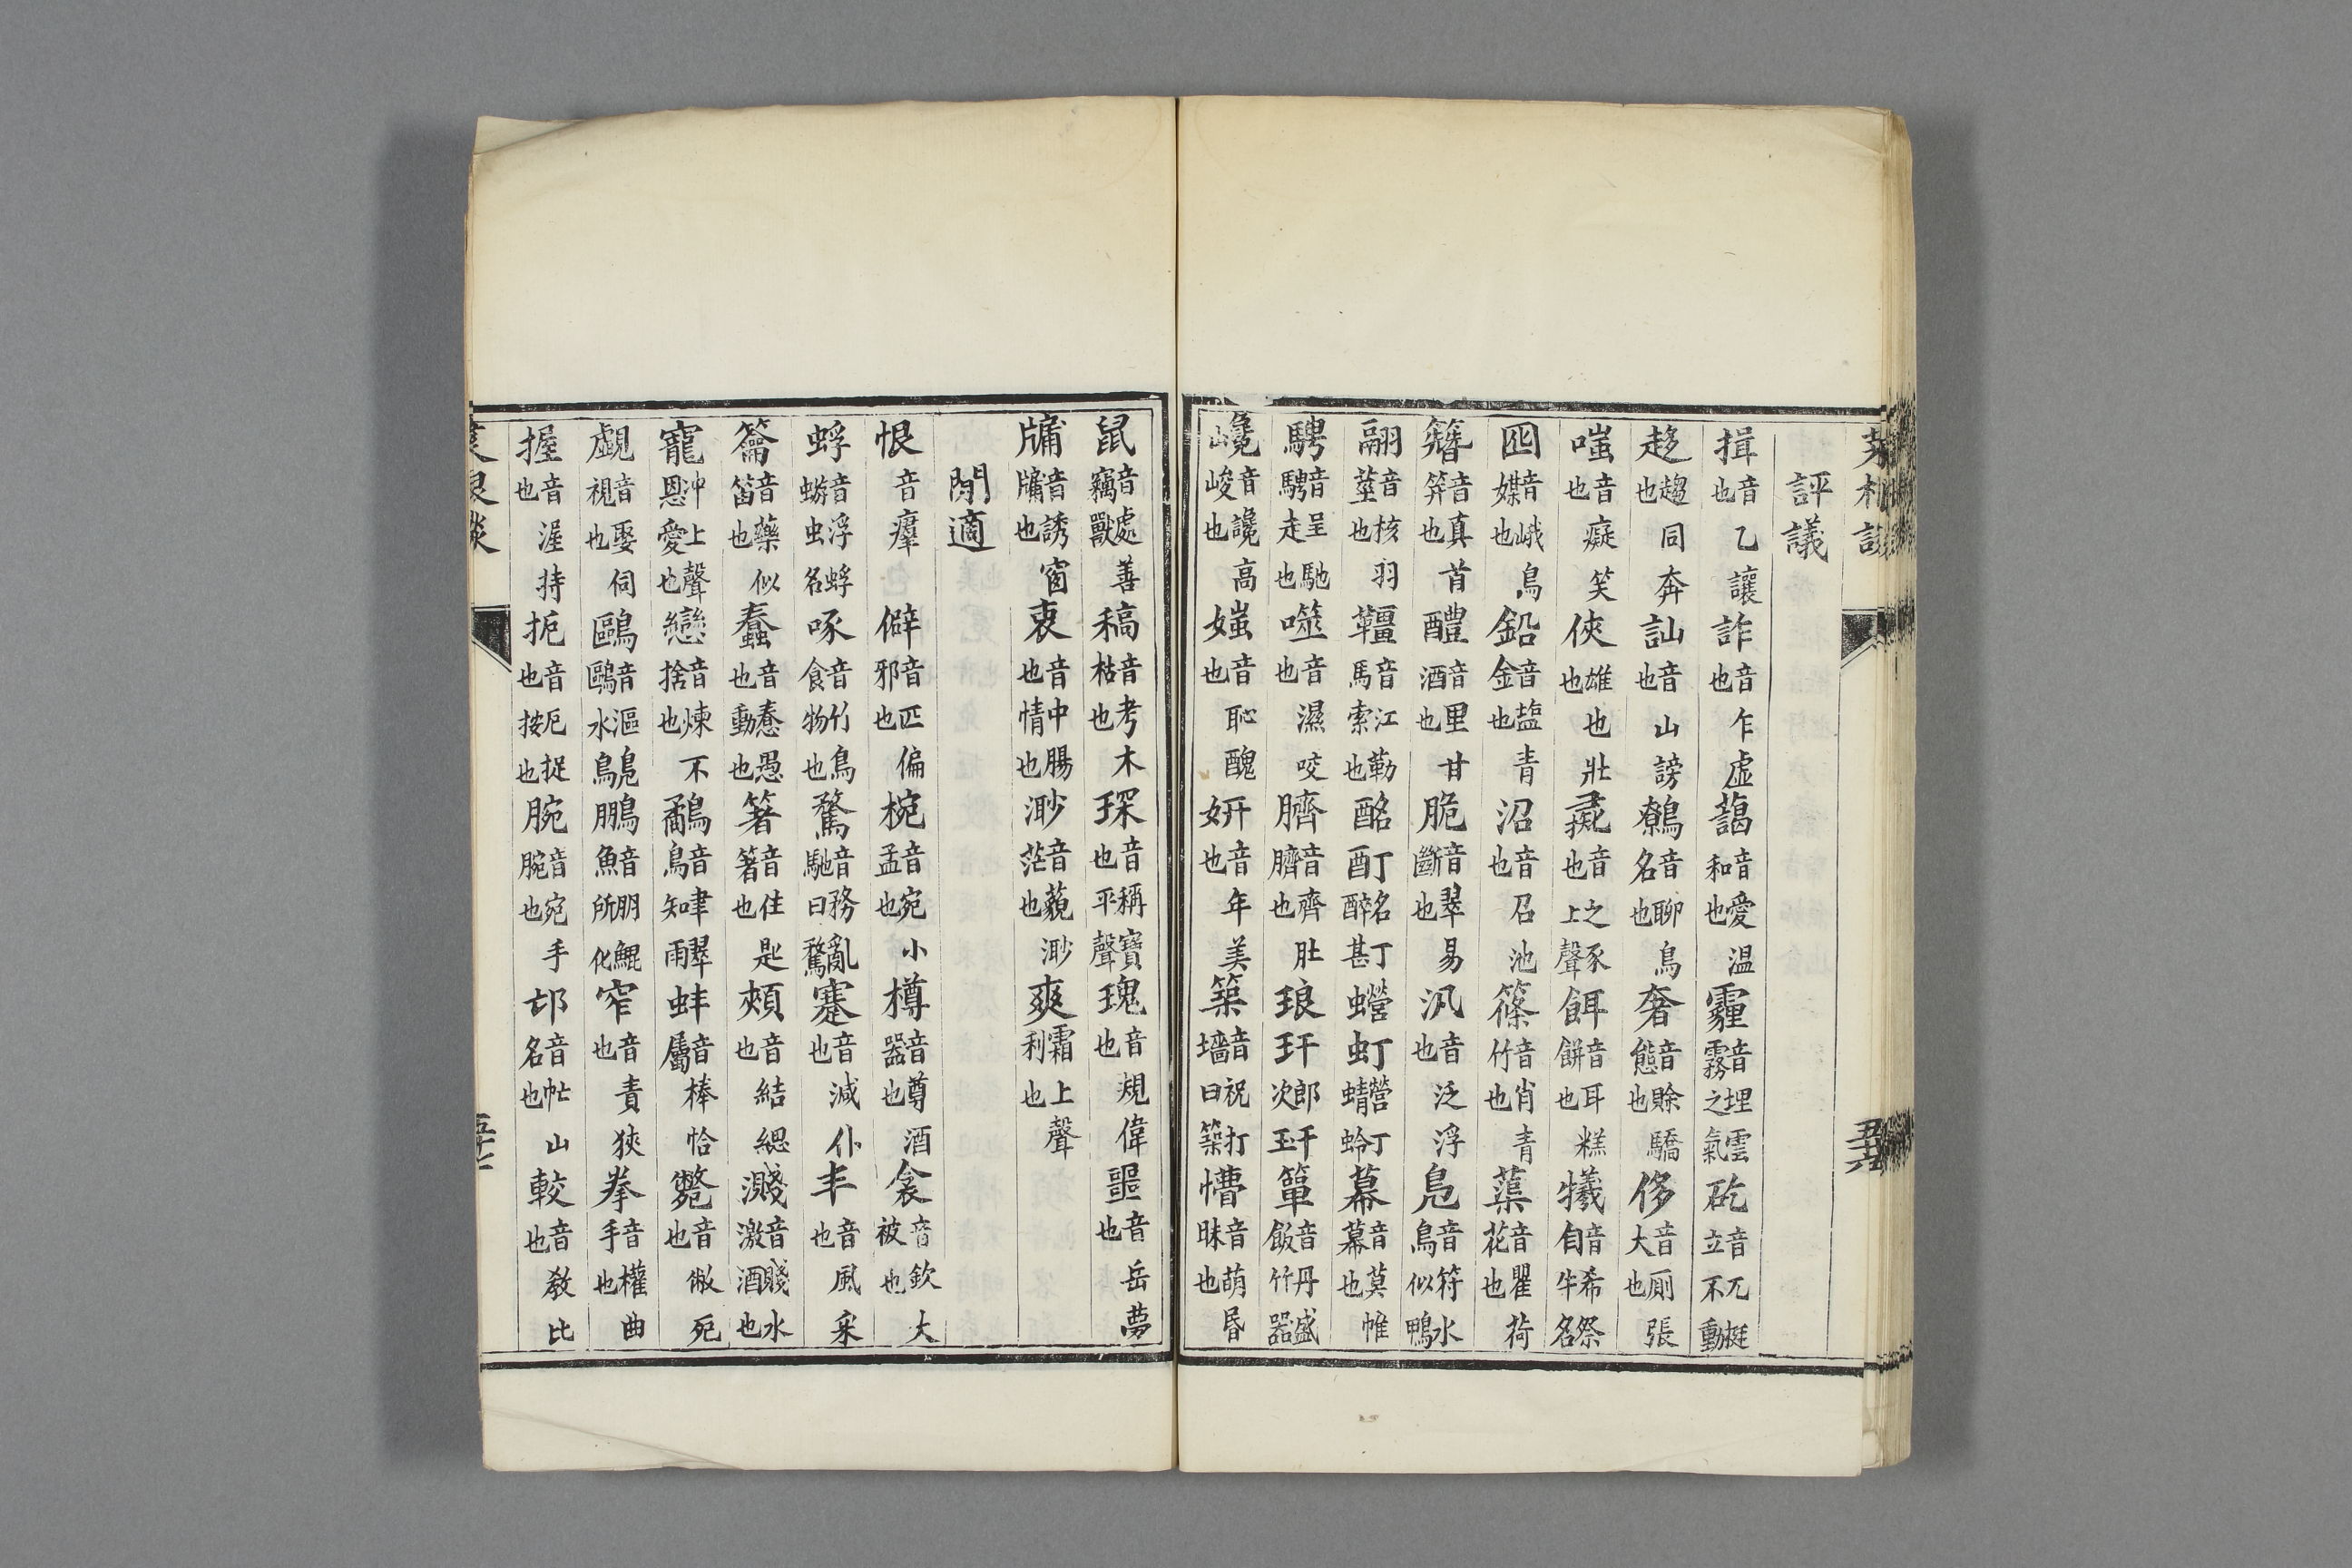 評議
揖音乙讓也詐音乍虛也藹音愛溫和也霾音埋雲霧之氣矻音兀挺立不動
趍趨同奔也訕音山謗也鷯音聊鳥名也奢音賒驕態也侈音厠張大也
嗤音癡笑也俠雄也壯也彘音之豕上聲也餌音耳糕餅也犧音希祭自牛名
囮音峨鳥媒也鉛音塩青金也沼音召池也篠音肖青竹也蕖音瞿荷花也
簪音真首笄也醴音里甘酒也脆音翠易斷也汎音泛浮也鳬音符水鳥似鴨
翮音核羽莖也韁音江勒馬索也酩丁名丁酊醉甚蠑丁營丁虫蜻蛉幕音莫帷幕也
騁音呈馳騁走也噬音濕咬也臍音齊肚臍也琅玕郎干次玉簞音丹盛飯竹器
巉音讒高峻也媸音恥醜也姸音年美也築音祝打墻曰築懵音萌昏昧也
鼠音處善竊獸稿音考木枯也琛音稱寶也平聲瑰音規偉也噩音岳夢也
牖音誘窗牖也衷音中腸也情也渺音藐渺茫也爽霜上聲利也
閒適
恨音瘽僻音匹偏邪也椀音宛小盂也樽音尊酒器也衾音欽大被也
蜉音浮蜉蝣虫名啄音竹鳥食物也騖音務亂馳曰騖蹇音減仆也丰音風采也
籥音藥似笛也蠢音憃愚也動也箸音住匙箸也頰音結緦也濺音賤水激酒也
寵冲上聲恩愛也戀音煉不捨也鷸音聿翠鳥知雨蚌音棒恰屬斃音俶死也
覷音娶伺視也鷗音漚鳬鷗水鳥鵬音朋鯤魚所化窄音責狹也拳音權曲手也
握音渥持也扼音厄捉也按也腕音宛手腕也邙音忙山名也較音教比也